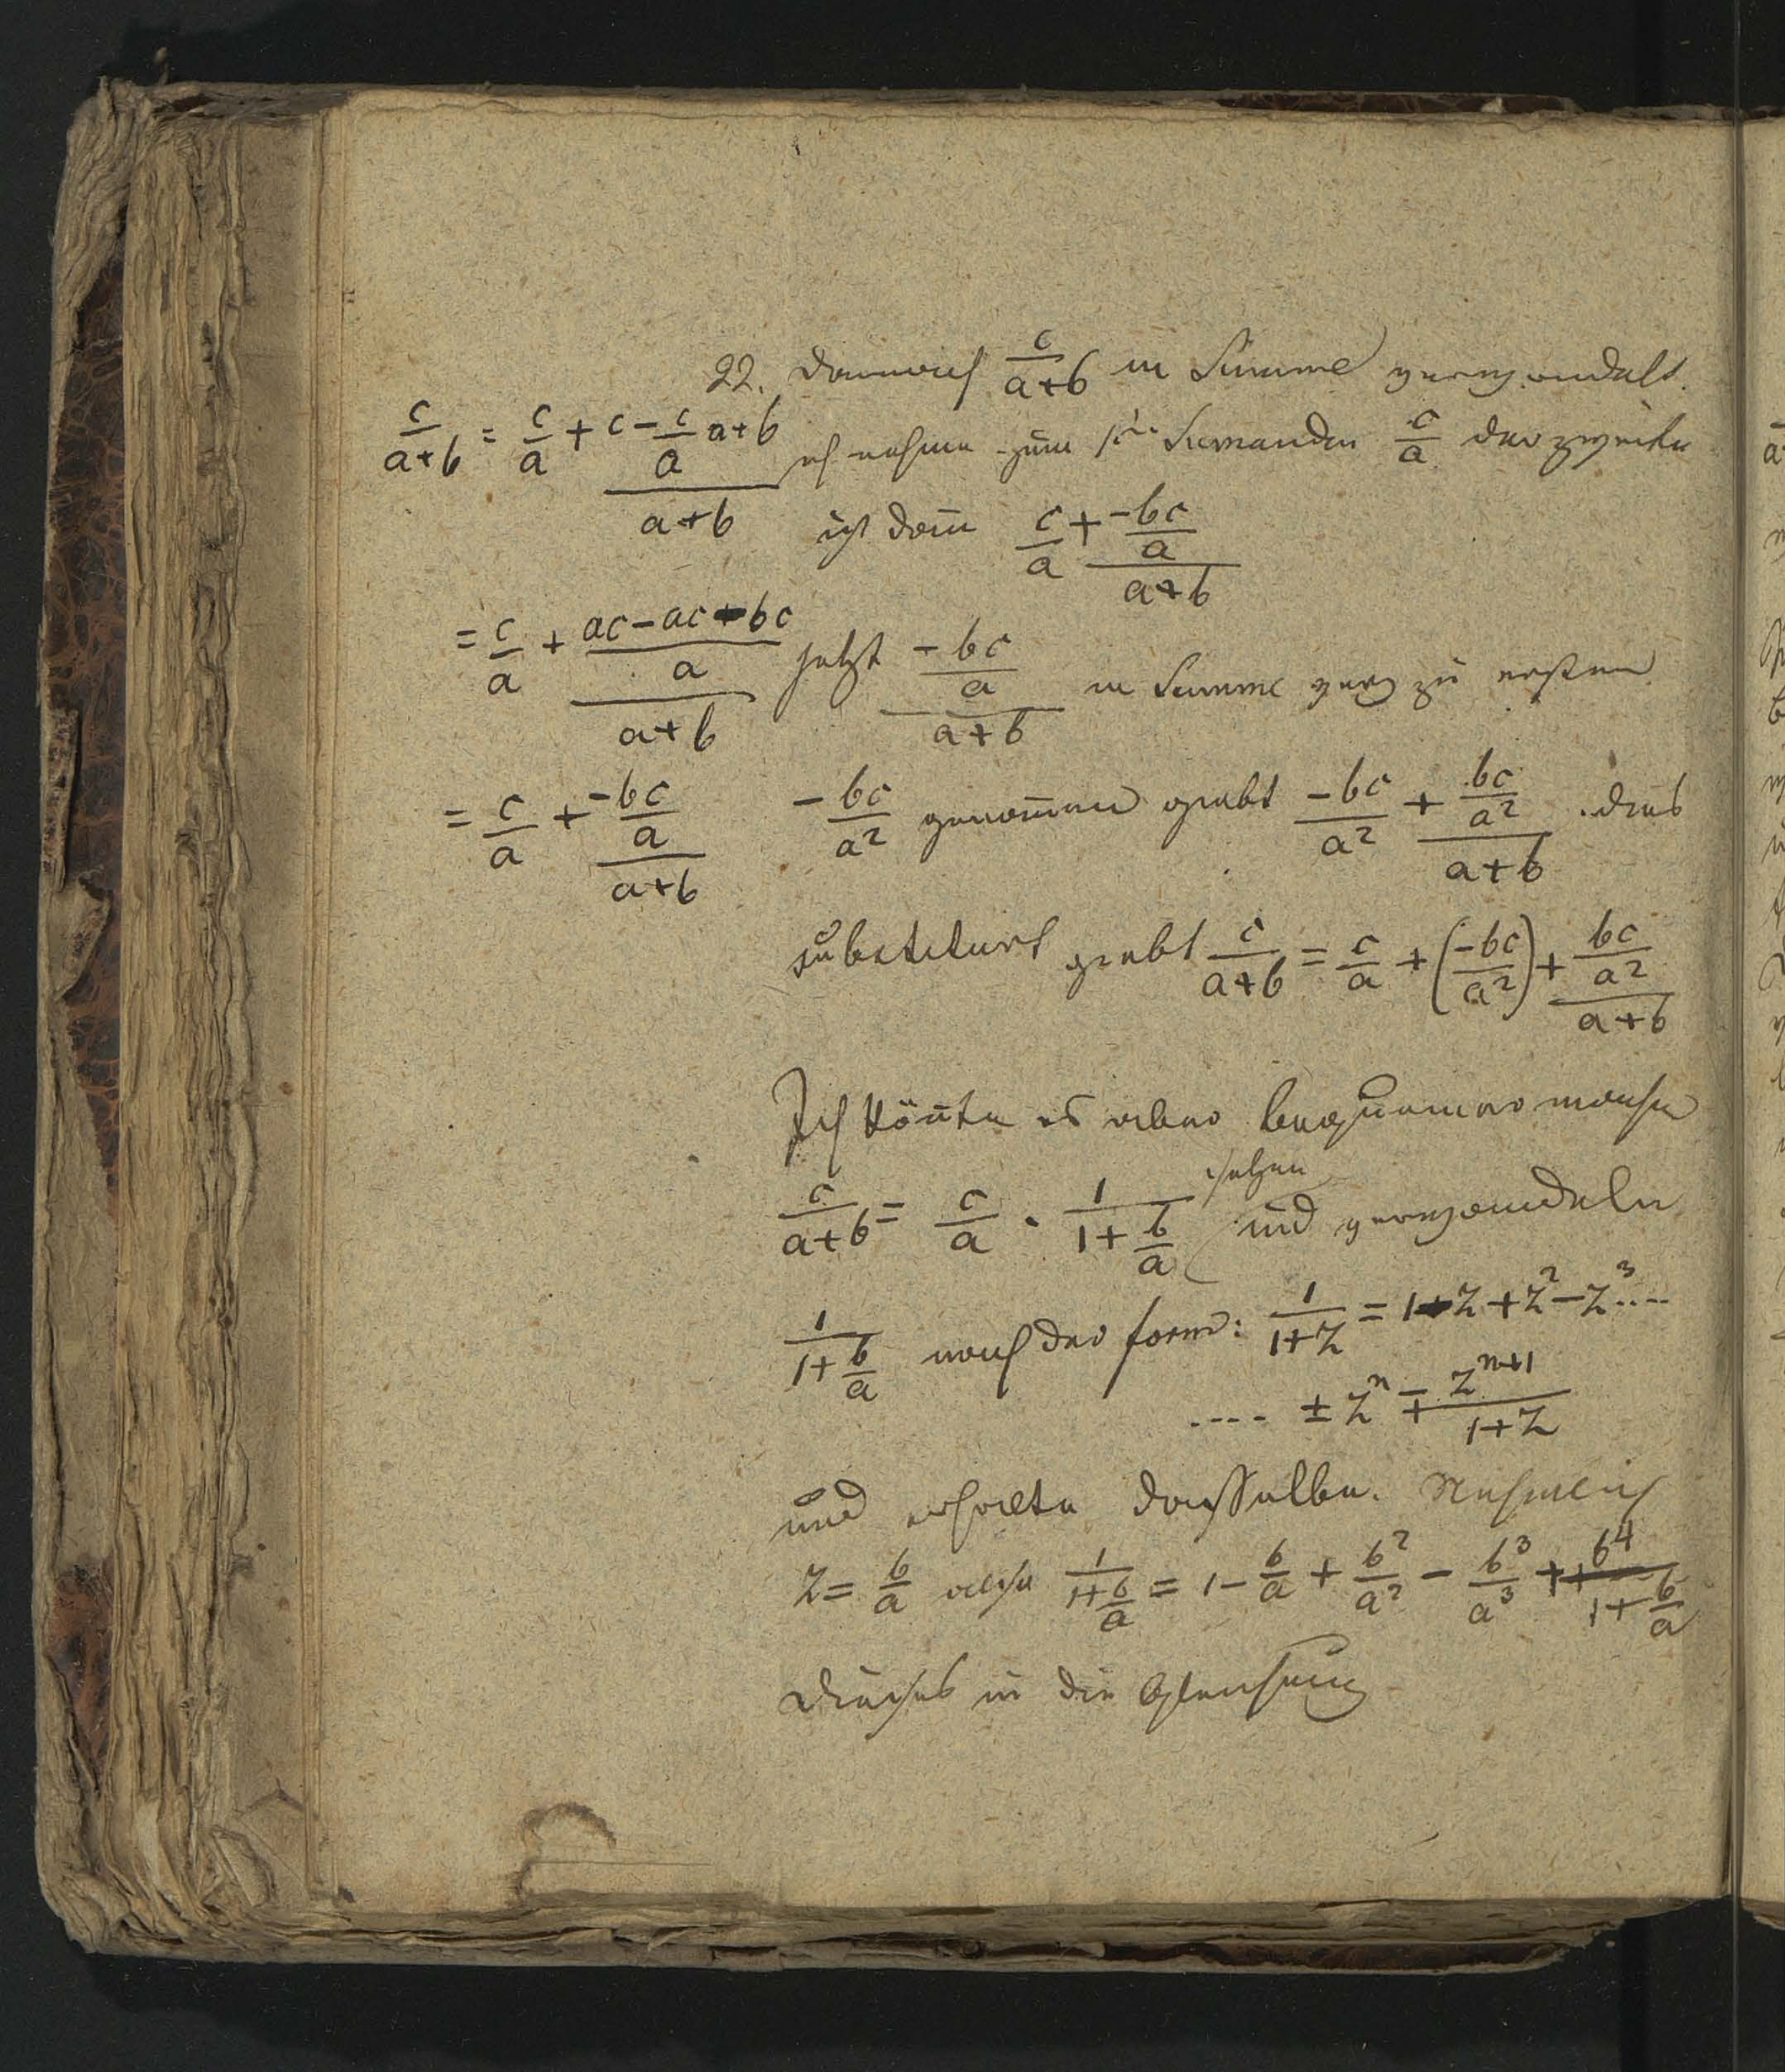 22. Darnach c/(a+b) in Summe verwandelt.
c/(a+b) = c/a + (c - c/a a+b)/(a+b)
ich nehme zum 1t. Sumanden c/a der zweite
ist dan̄ c/a + (-bc/a)/(a+b)
= c/a + ((ac-ac-bc)/a)/(a+b)
jetzt (-bc/a)/(a+b) in Summe zu ersten
= c/a + (-bc/a)/(a+b)
-bc/a² genom̄en giebt -bc/a² + (bc/a²)/(a+b). dies
substituirt giebt c/(a+b) = c/a + (-bc/a²) + (bc/a²)/(a+b)
Ich kön̄te es aber bequemer machen
setzen
c/(a+b) = c/a · 1/(1+b/a) und verwandeln
1/(1+b/a) nach der form: 1/(1+z) = 1-z+z²-z³....
.... ± zⁿ ∓ zⁿ⁺¹/(1+z)
und erhalte dasselbe. Nehmlich
z = b/a also 1/(1+b/a) = 1 - b/a + b²/a² - b³/a³ + b⁴/(1+b/a)
dieses in die Gleichung